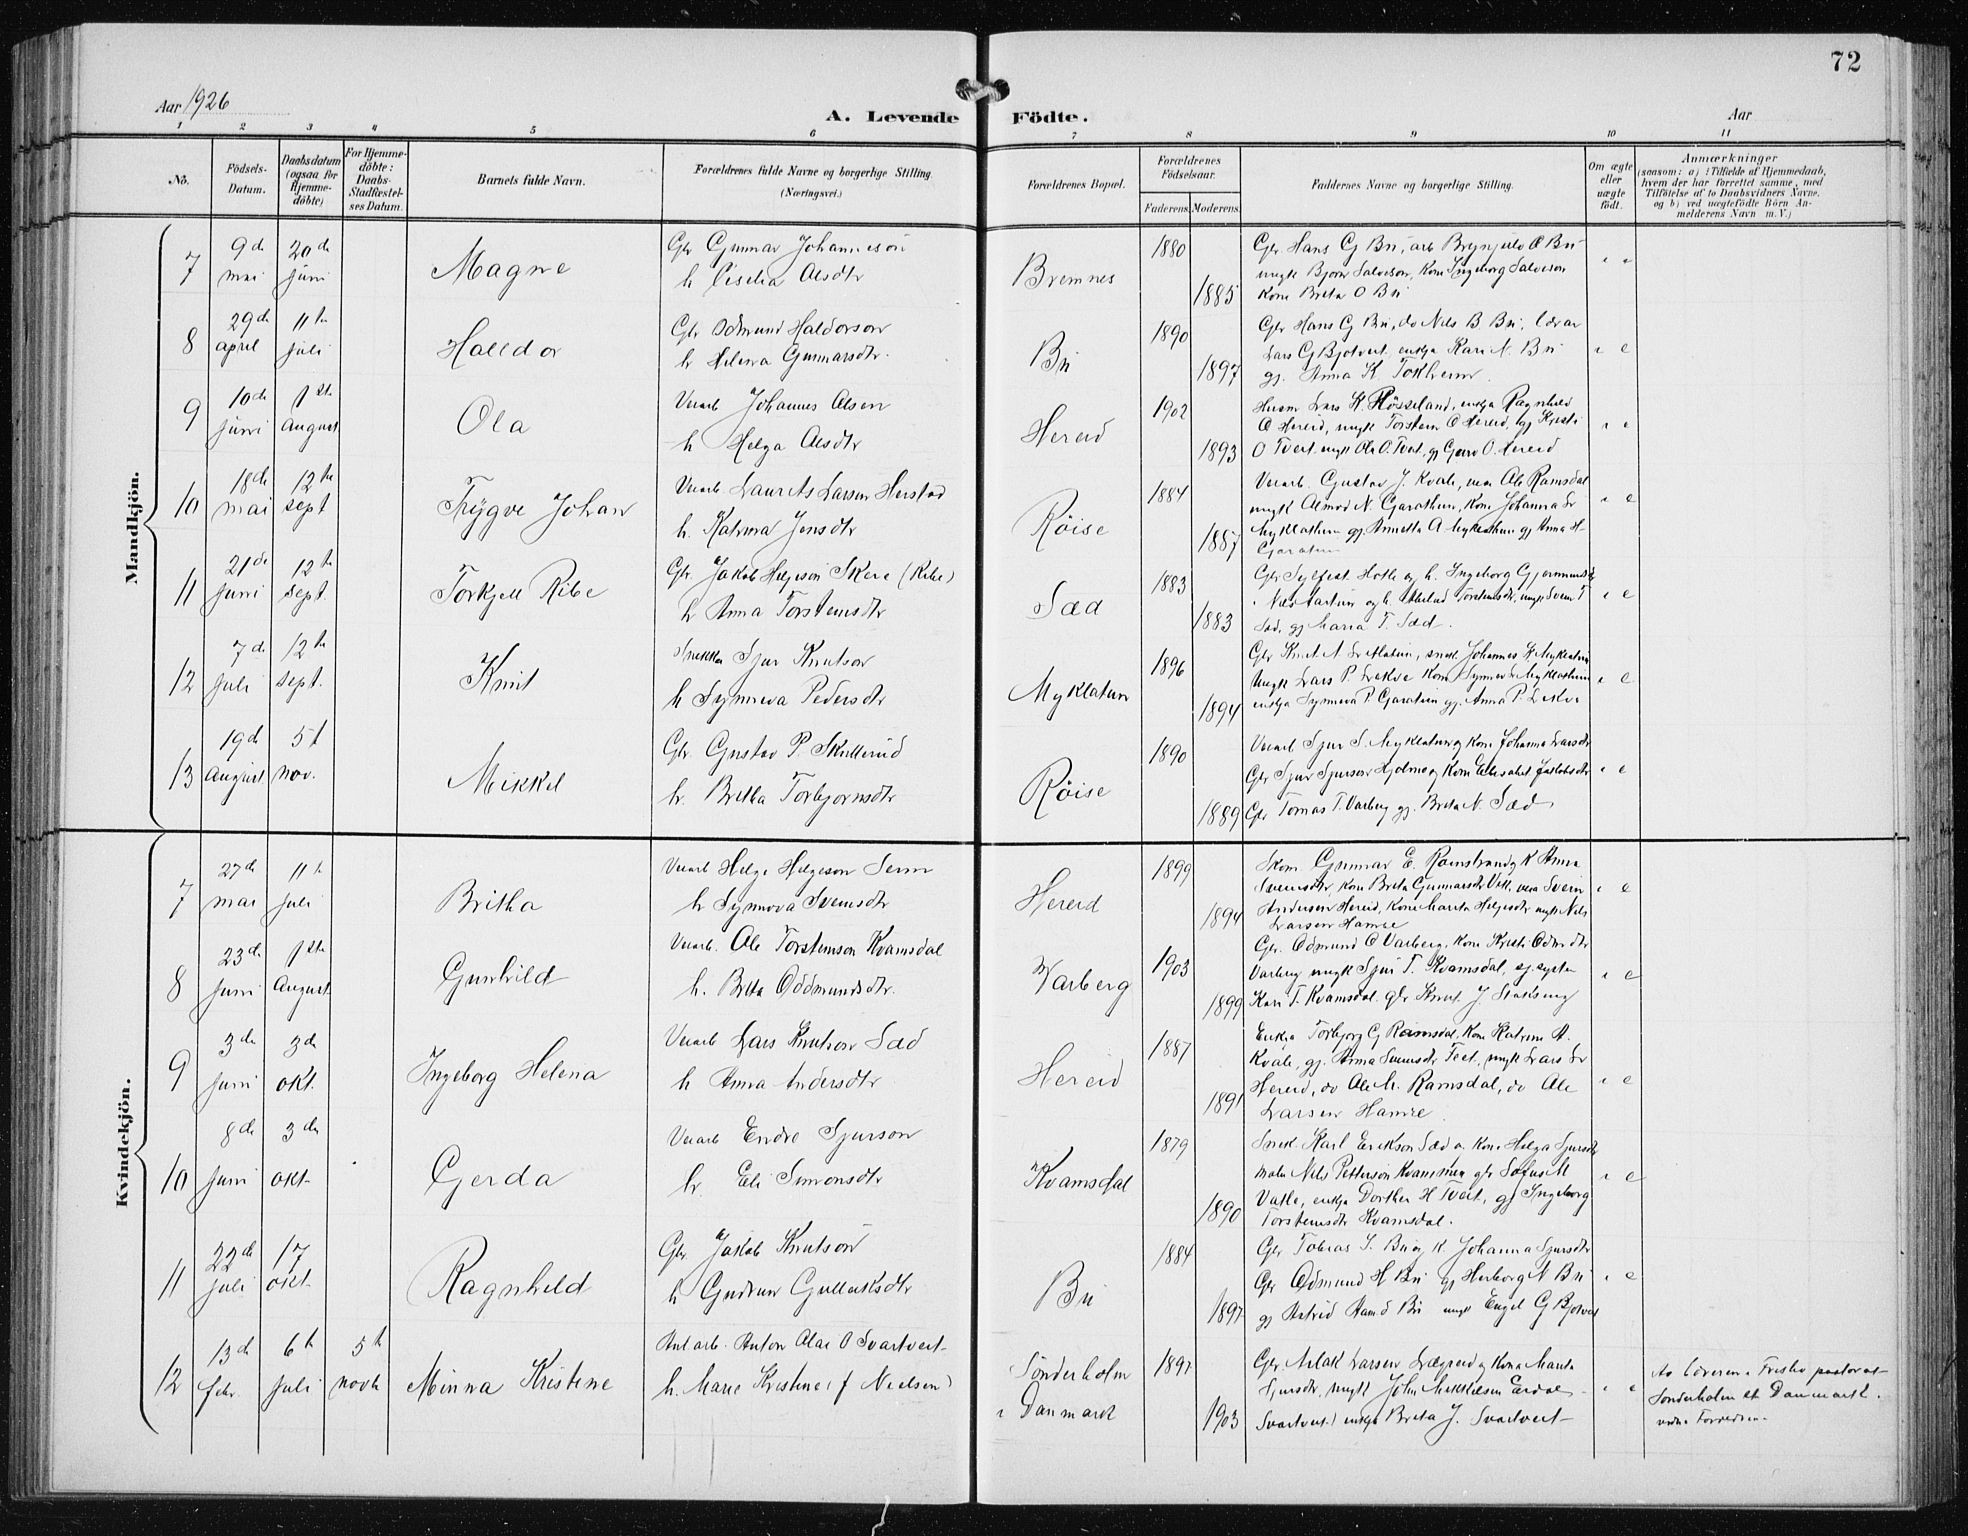 72
Aar 1926
A. Levende Födte.
Aar
1 2 3 4 5 6 7 8 9 10 11
No.
Födsels-Datum.
Daabsdatum (ogsaa for Hjemme-döbte)
For Hjemme-döbte: Daabs-Stadfæstel-ses Datum.
Barnets fulde Navn.
Forældrenes fulde Navne og borgerlige Stilling. (Næringsvei.)
Forældrenes Bopæl.
Forældrenes Födselsaar.
Faderens. Moderens.
Faddernes Navne og borgerlige Stilling.
Om ægte eller uægte födt.
Anmærkninger
(saasom: a) i Tilfælde af Hjemmedaab, hvem der har forrettet samme, med Tilföielse af to Daabsvidners Navne. og b) ved uægtefödte Börn An-melderens Navn m. V.)
Mandkjön.
7 9de mai 20de juni Magne
Gbr Gunnar Johanneson
h Cicilia Olsdtr
Bremnes 1880 1885
Gbr Hans G Bu, arb Brynjulv O Bu
ungk Bjørn Salveson, Kone Ingeborg Salveson
Kone Breta O Bu
8 29de april 11te juli Halldor
Gbr Odmund Haldorson
h Helena Gunnarsdtr.
Bu 1890 1897
Gbr Hans G Bu, do Nils B Bu, lærar
Lars G Bjotveit, enkja Kari N. Bu
gj. Anna K Tokheim
9 10de juni 1ste august Ola
Verarb Johannes Olsen
h Helga Olsdtr
Hereid 1902 1893
Husm Lars K. Røsseland, enkja Ragnhild
O Hereid, ungk Torstein O Hereid, gj Kristi
O Tveit, ungk Ola O. Tveit, gj Guro O. Hereid
10 18de mai 12te sept Trygve Johan
Verarb. Laurits Larsen Herstad
h. Katrina Jensdtr
Røise 1884 1887
Verarb. Gustav J. Kvale, Ole Ramsdal
ungk Almod N. Garathun, Kone Johanna Sr
Myklathun gj Annetta A Myklathun gj Anna H
Garatun
11 21de juni 12te sept. Torkjell Ribe
Gbr. Jakob Helgeson Skeie (Ribe)
h Anna Torsteinsdtr
Sæd 1883 1883
Gbr Sylfest Hotle og h. Ingeborg Gjermundsdtr
Torsteinsdtr, ungk Svein T
Sæd, gj Maria T. Sæd.
12 7de juli 12te sept. Knut
Snekker Sjur Knutson
h Synneva Pedersdtr
Myklatun 1896 1894
Johannes K Myklatun
Ungk Lars P. Lekve Kone Synneva Myklathun
enkja Synneva P. Garatun gj. Anna P. Lekve
13 19de august 5t nov. Mikkel
Gbr. Gustav P. Skullerud
h. Britha Torbjornsdtr
Røise 1890 1889
Verarb Sjur S. Myklatun og Kone Johanna Larsdtr
Gbr Sjur Sjurson Hjolmo og Kone Elisabet Jakobsdtr
Gbr Tomas T. Varberg gj. Breta N. Sæd
Kvindekjön.
7 27de mai 11te juli Britha
Verarb Helge Helgeson
h Synnova Sveinsdtr
Hereid 1899 1894
Skom. Gunnar E. Ramstrand og K Anna
Sveinsdtr kone Breta Gunnarsdtr Svein
Anderson Hereid, Kone Marita Helgesdtr ungk Nils
Larsen Hamre
8 23de juni 1ste august Gunhild
Verarb. Ole Torsteinson Kvamsdal
h. Brita Oddmundsdtr.
Varberg 1903 1899
Gbr. Odmund O Varberg, Kone Kristi Odm dtr
Varberg ungk Sjur T. Kvamsdal,
Kari T. Kvamsdal. gbr Knut J.
9 3de juni 3de okt. Ingeborg Helena
Verarb Lars Knutson Sæd
h Anna Andersdtr
Hereid 1887 1891
Enkja Torbjorg G Ramsdal, Kone Katrine A.
Kvale, gj. Anna Sveinsdtr Feet, ungk Lars Sr
Hereid, do Ole M. Ramsdal, do Ole
Larsen Hamre
10 8de juni 3de okt. Gerda
Verarb Endre Sjurson
h. Eli Simonsdtr
Kvamsdal 1879 1890
Snek. Karl Erikson Sæd og Kone Helga Sjursdtr
maler Nils Petterson Kvammen gbr Sofus M
Vatle, enkja Dorthea H Tveit, gj Ingeborg
Torsteinsdtr Kvamsdal.
11 22de juli 17 okt. Ragnhild
Gbr. Jakob Knutson
h Gudrun Gulleiksdtr
Bu 1884 1897
Gbr Tobias S. Bu og K. Johanna Sjursdtr
Gbr Odmund H Bu gj Herborg N Bu
gj Astrid Bu ungk Engel G Bjotveit
12 13de febr. 6t juli 5t novb Minna Kristine
Anl arb. Anton Olai O Svartveit
h. Marie Kristine (f Nielsen)
Sönderholm i Danmark 1897 1903
Gbr. Aslak Larsen Lægreid og Kona Marita
Sjursdtr, ungk John Mikkelsen Eidal
Svartveit enkja Breta J. Svartveit
Frislev pastorat
Sönderholm st Danmark.